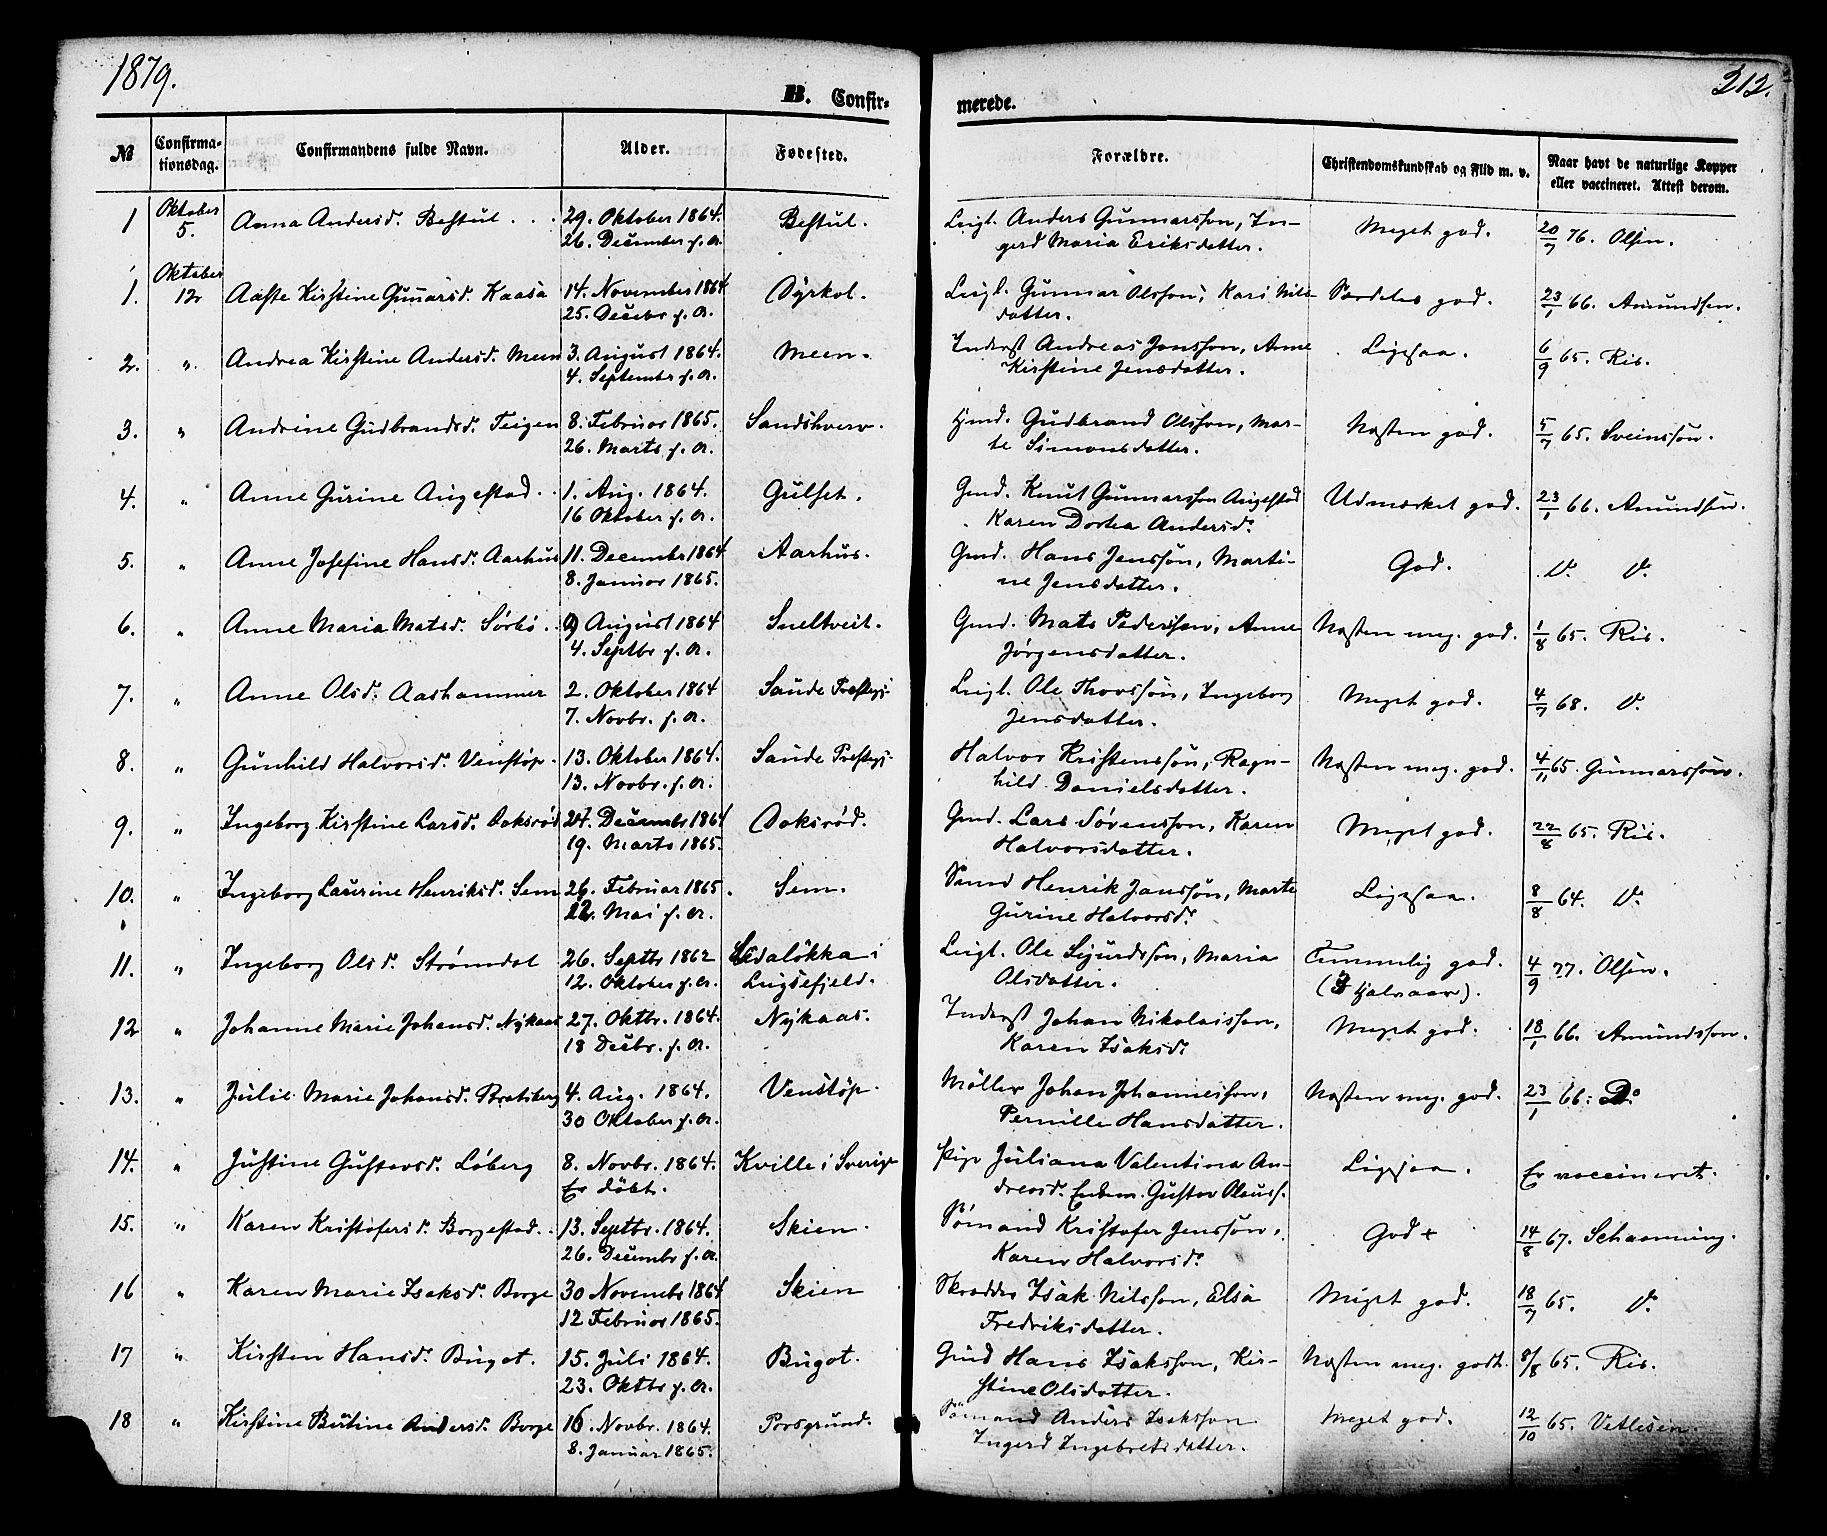 1879.
212.
B. Confir-
merede.
№ Confirma- Confirmandens fulde Navn. Alder. Fødested. Forældre. Christendomskundskab og Flid m. v. Naar havt de naturlige Kopper
tionsdag. eller vaccineret. Attest derom.
1 Oktober Anna Andersd. Bestul . . . 29. Oktober 1864. Bestul. Leigl. Anders Gunnarsson, In- Meget god. 20/7 76. Olsen.
5. 26. December s. A. gerd Maria Eriksdatter.
1. Oktober Aaste Kirstine Gunarsd. Kaasa 14. November 1864 Dyrkol. Leigl. Gunnar Olsson, Kari Nils Særdeles god. 23/1 66. Amundsen.
12 25. Decebr s. A. datter.
2. " Andrea Kirstine Andersd. Meen 3. August 1864. Meen. Inderst Andreas Jonsson, Anne Ligesaa. 6/9 65. Ris.
4. Septembr s. A. Kirstine Jensdatter.
3. " Andrine Gudbrandsd. Teigen 8. Februar 1865. Sandshverv. Hmd. Gudbrand Olsson, Mar- Næsten god. 5/7 65. Sveinssøn.
26. Marts s. A. te Simonsdatter.
4. " Anne Gurine Augestad . . 1. Aug. 1864. Gulset. Gmd. Knut Gunnarsson Augestad Udmærket god. 23/1 66. Amundsen.
16 Oktober s. A. Karen Dortea Andersd.
5. " Anne Josefine Hansd. Aarhus 11. Decembr 1864 Aarhus. Gmd. Hans Jenssøn, Marti- God. D. D.
8. Januar 1865. ne Jensdatter.
6. " Anne Maria Matsd. Sørbø . 9 August 1864 Sneltveit. Gmd. Mats Pederssen, Anne Næsten meg. god. 1/8 65. Ris.
4. Septbr s. A. Jørgensdatter.
7. " Anne Olsd. Aashammer 2. Oktober 1864 Saude Prestegj. Leigl. Ole Thovssøn, Ingeborg Meget god. 4/7 68. D.
7. Novbr. s. A. Jensdatter.
8. " Gunhild Halvorsd. Venstøp. 13. Oktober 1864. Saude Prestegj. Halvor Kristenssøn, Ragn- Næsten meg. god. 4/11 65. Gunnarssøn.
13. Novbr. s. A. hild Danielsdatter.
9. " Ingeborg Kirstine Larsd. Doksrød 24. Decembr 1864 Doksrød. Gmd. Lars Sørensson, Karen Meget god. 22/8 65. Ris.
19. Marts 1865. Halvorsdatter.
10. " Ingeborg Laurine Henriksd. Sem 26. Februar 1865. Sem. Smed Henrik Janssøn, Marte Ligesaa. 8/8 64. D.
22. Mai s. A. Gurine Halvorsd.
11. " Ingeborg Olsd. Strømdal 26. Septbr 1862 Lidaløkka i Leigl. Ole Sjurdssøn, Maria Temmelig god. 4/9 77. Olsen.
12. Oktober s. A. Lugsefjeld. Olsdatter. (3 Halvaar).
12 " Johanne Marie Johansd. Nykaas 27. Oktbr. 1864. Nykaas. Inderst Johan Nikolaisson, Meget god. 18/1 66. Amundsson.
18 Decbr. s. A. Karen Isaksd.
13. " Julie Marie Johansd. Bratsberg 4. Aug. 1864. Venstøp. Møller Johan Johannesson, Næsten meg. god. 23/1 66. Do
30 Oktober s. A. Pernille Hansdatter.
14. " Justine Gustavsd. Løberg 8. Novbr. 1864. Kville i Sverige Pige Juliana Valentina An- Ligesaa. Er vaccineret.
Er døbt. dreasd. Enkem. Gustav Oleuss.
15. " Karen Kristofersd. Borgestad . . 13. Septbr. 1864. Skien. Sømand Kristofer Jenssøn, God + 14/8 67. Schaanning.
26. Decembr s. A. Karen Halvorsd.
16 " Karen Marie Isaksd. Borge 30 Novembr 1864 Skien Skrædder Isak Nilsson, Elsa Meget god. 18/7 65. D.
12 Februar 1865. Fredriksdatter.
17 " Kirsten Hansd. Bugot. 15. Juli 1864. Bugot. Gmd Hans Isaksson, Kir- Næsten meg. godt. 8/8 65. Ris.
23. Oktbr s. A. stine Olsdatter.
18 " Kirstine Butine Andersd. Borge 16. Novbr. 1864. Porsgrund. Sømand Anders Isaksson Meget god. 12/10 65. Vetlesen.
8. Januar 1865. Ingerd Ingebretsdatter.